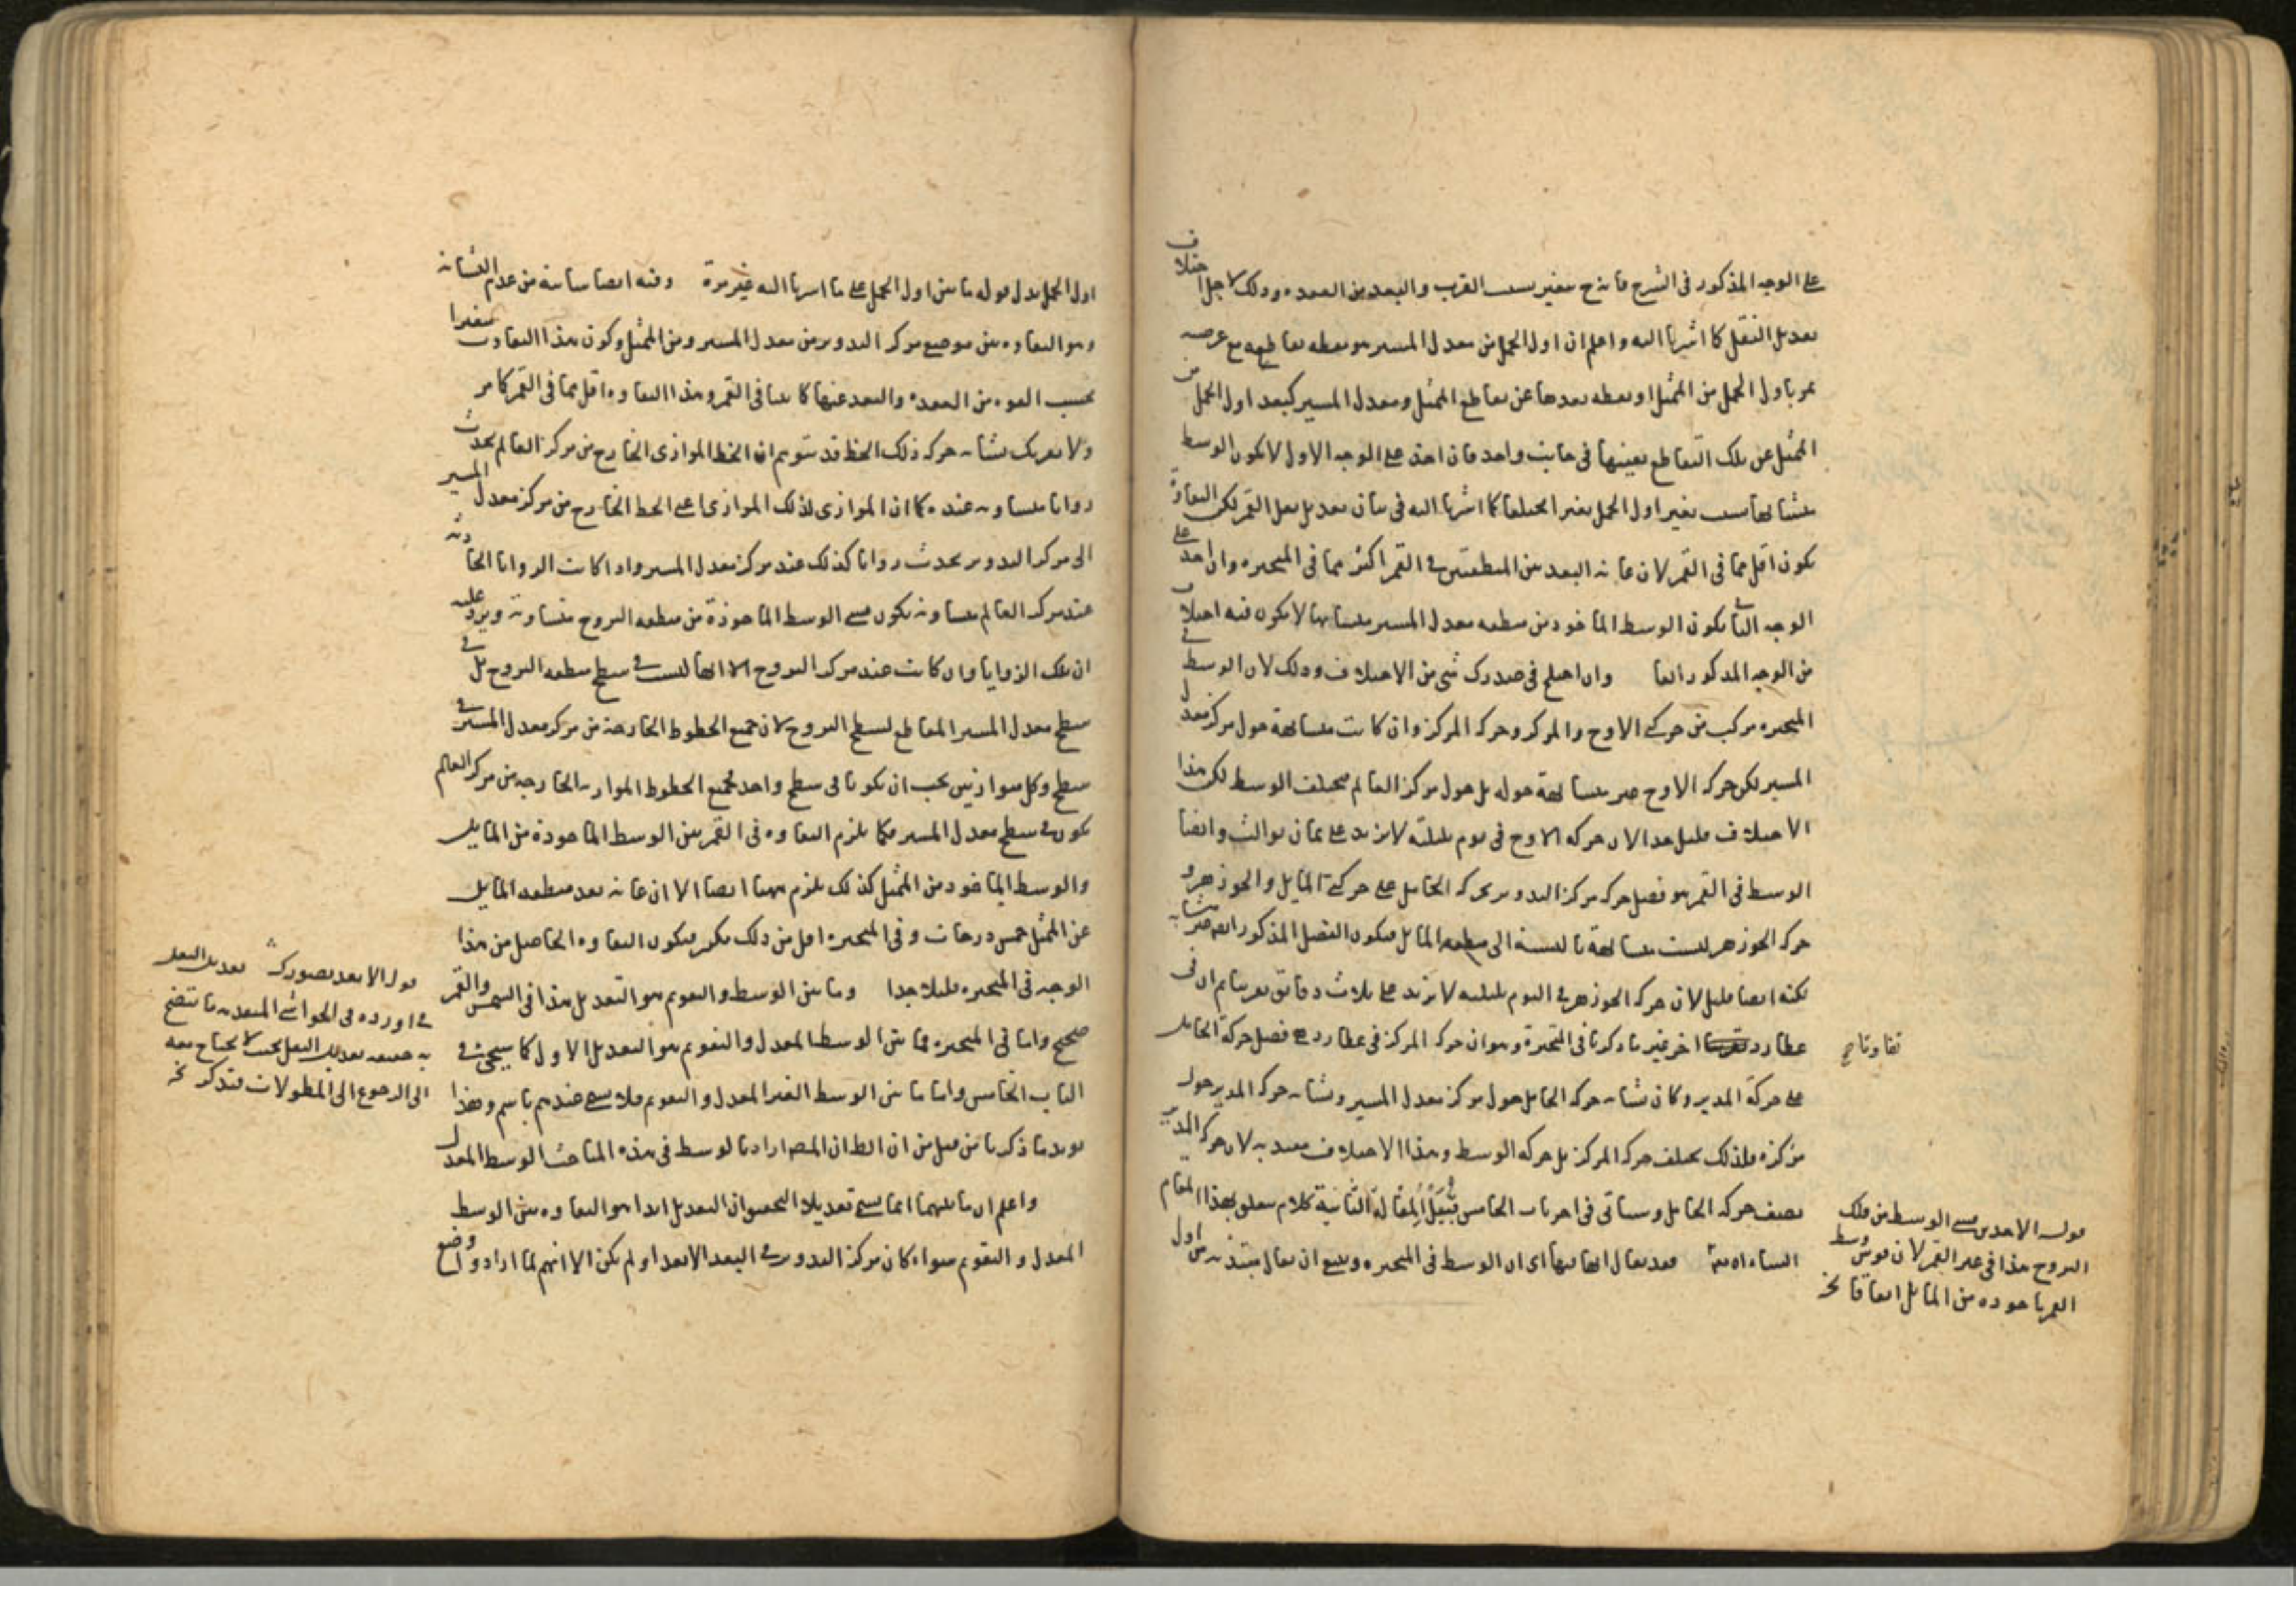 على الوجه المذكور في الشرح فانه ح يتغير بسبب القرب والبعد من العقده وذلك لاجل اختلاف
تعديل النقل كما اشرنا اليه واعلم ان اول الحمل من معدل المسير هو نقطه تقاطعه مع عرضيه
تمر باول الحمل من الممثل او نقطه بعدها عن تقاطع الممثل ومعدل المسير كبعد اول الحمل من
الممثل عن تلك التقاطع بعينها في جانب واحد فان اخذ على الوجه الاول لا يكون الوسط
متشابها بسبب تغير اول الحمل تغيرا مختلفا كما اشرنا اليه في بيان تعديل نقل القمر لكن التفاوت
يكون اقل مما في القمر لان غايه البعد بين المنطقتين في القمر اكثر مما في المتحيره وان اخذ على
الوجه الثاني يكون الوسط الماخوذ من منطقه معدل المسير متشابها لا يكون فيه اختلاف
من الوجه المذكور انفا وان اختلج في صدرك شي من الاختلاف وذلك لان الوسط في
المتحيره مركب من حركتي الاوج والمركز وحركه المركز وان كانت متشابهة حول مركز معدل
المسير لكن حركه الاوج غير متشابهة حوله بل حول مركز العالم فيختلف الوسط لكن هذا
الاختلاف قليل جدا لان حركه الاوج في يوم بليلته لا يزيد على ثمان ثوالث وايضا
الوسط في القمر هو فضل حركه مركز التدوير بحركه الحامل على حركتي المايل والجوزهر و
حركه الجوزهر ليست متشابهة بالنسبة الى منطقه المايل فيكون الفضل المذكور ايضا غير متشابه
لكنه ايضا قليل لان حركه الجوزهر في اليوم بليلته لا يزيد على ثلاث دقايق تقريبا ثم ان في
عطارد اخر غير ما ذكرنا في المتحيرة وهو ان حركه المركز في عطارد هي فضل حركة الحامل
تفاوتا صح
على حركة المدير وكان تشابه حركه الحامل حول مركز معدل المسير وتشابه حركه المدير حول
مركزه فلذلك يختلف حركه المركز بل حركه الوسط وهذا الاختلاف معتد به لان حركه المدير
نصف حركه الحامل وسياتي في اخر باب الخامس قبيل المقالة الثانية كلام متعلق بهذا المقام
ان شاء الله تعالى فقد يقال انها فيها اي ان الوسط في المتحيره وينبغي ان يقال مبتدئه من اول
قوله الا حدى يسمى الوسط من فلك
البروج هذا في غير القمر لان قوس وسط
القمر ماخوذه من المايل اتفاقا نخ
اول الحمل بدل قوله ما بين اول الحمل على ما اشرنا اليه غير مرة وفيه ايضا شايبة من عدم التشابه
وهو التفاوه بين موضع مركز التدوير من معدل المسير ومن الممثل وكون هذا التفاوت متغيرا
بحسب القوه من العقده والبعد عنها كما بينا في القمر وهذا التفاوه اقل مما في القمر كما مر
ولا يغرنك تشابه حركه ذلك الخط قد يتوهم ان الخط الموازى الخارج من مركز العالم يحدث
زوايا متساويه عنده كما ان الموازى لذلك الموازى اعني الخط الخارج من مركز معدل المسير
الى مركز التدوير يحدث زوايا كذلك عند مركز معدل المسير واذا كانت الزوايا الحادثه
عند مركز العالم متساويه يكون قسي الوسط الماخوذة من منطقه البروج متساويه ويرد عليه
ان تلك الزوايا وان كانت عند مركز البروج الا انها ليست في سطح منطقه البروج بل في
سطح معدل المسير المقاطع لسطح البروج لان جميع الخطوط الخارجة من مركز معدل المسير في
سطح وكل متوازيين يجب ان يكونا في سطح واحد فجميع الخطوط الموازيه الخارجه من مركز العالم
يكون في سطح معدل المسير فكما يلزم التفاوه في القمر بين الوسط الماخوذة من المايل
والوسط الماخوذ من الممثل كذلك يلزم ههنا ايضا الا ان غايه بعد منطقه المايل
عن الممثل خمس درجات وفي المتحيره اقل من ذلك بكثير فيكون التفاوه الحاصل من هذا
الوجه في المتحيره قليلا جدا وما بين الوسط والتقويم هو التعديل هذا في الشمس والقمر
صحيح واما في المتحيره فما بين الوسط المعدل والتقويم هو التعديل الاول كما سيجئ في
الباب الخامس واما ما بين الوسط الغير المعدل والتقويم فلا يسمى عندهم باسم وهذا
يويد ما ذكرنا من قبل من ان الظ ان المص اراد بالوسط في هذه المباحث الوسط المعدل
واعلم ان ما بينهما انما يسمى تعديلا التحقيق ان التعديل ابدا هو التفاوه بين الوسط
المعدل والتقويم سواء كان مركز التدوير في البعد الابعد او لم يكن الا انهم لما ارادوا وضع
قوله الا بعد تصورك تعديل النقل
في اورده في الحواشي المتقدمه ما يتضح
به حقيقه تعديل النقل بحيث لا يحتاج معه
الى الرجوع الى المطولات فتذكر نخ